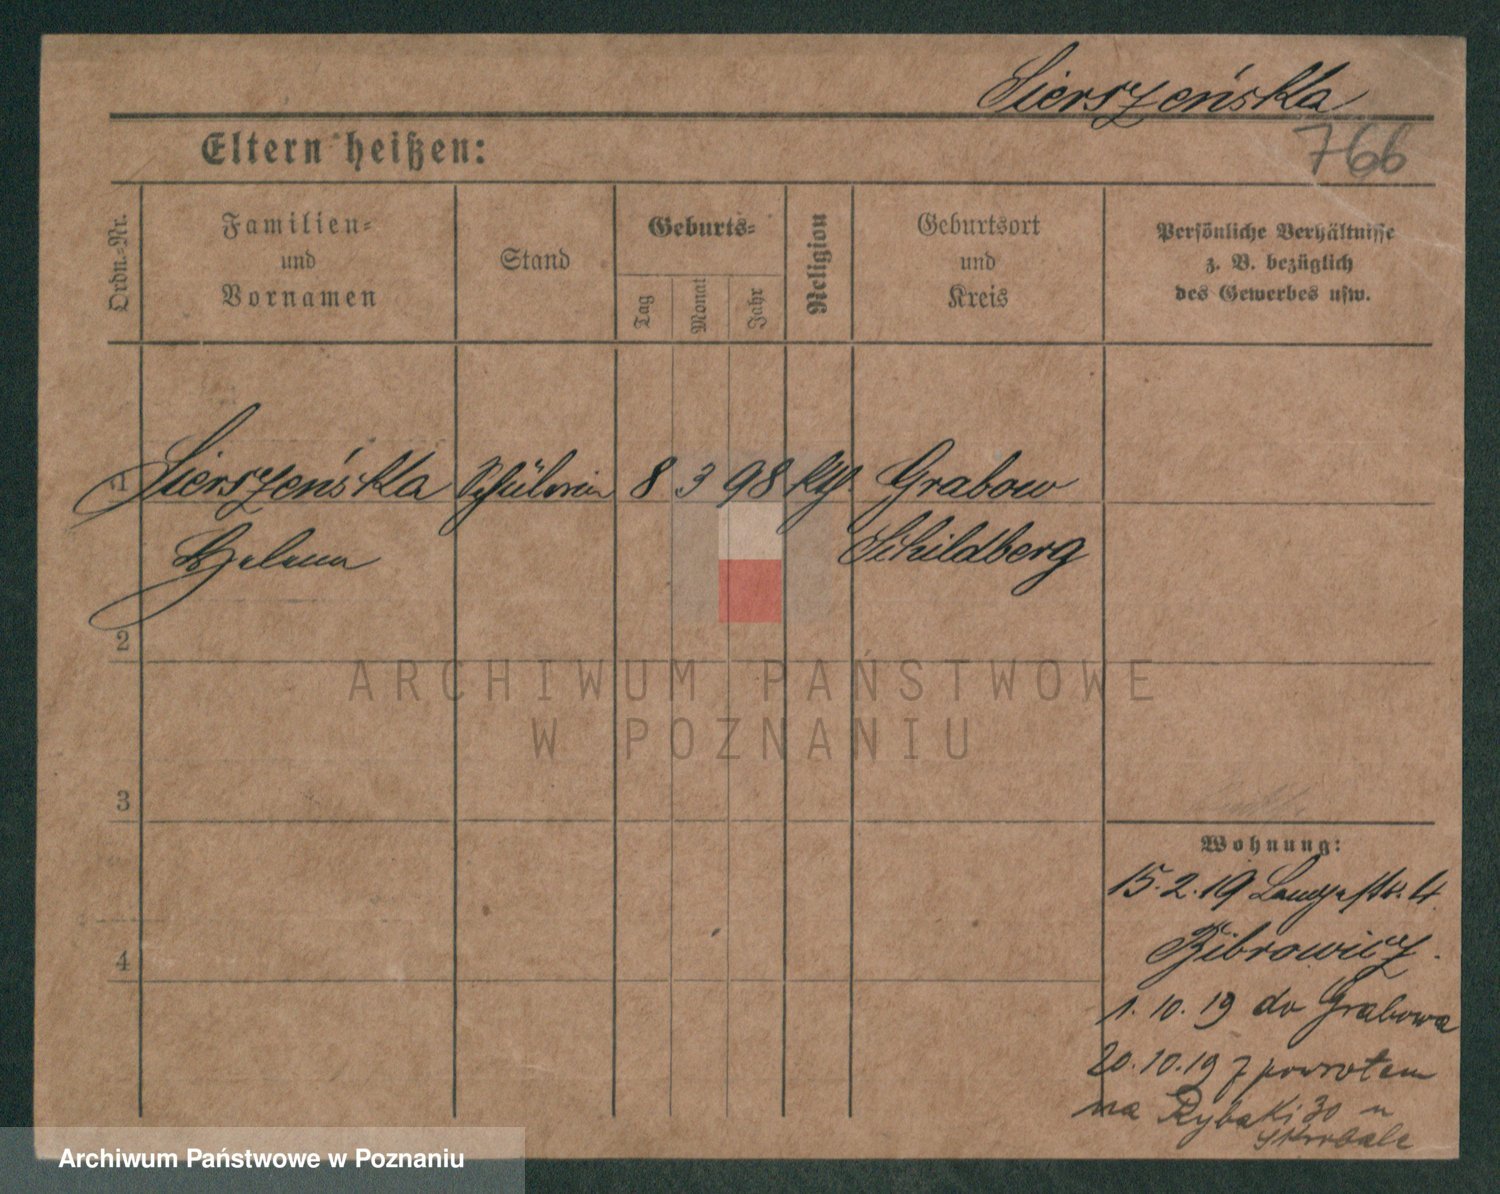 Sierszeńska
766
Eltern heißen:
Ordn.-Nr.
Familien-
und
Vornamen
Stand
Geburts-
Tag
Monat
Jahr
Religion
Geburtsort
und
Kreis
Persönliche Verhältnisse
z. B. bezüglich
des Gewerbes usw.
1 Sierszeńska Schülerin 8 3 98 kth. Grabow
Helena Schildberg
2
ARCHIWUM PAŃSTWOWE
W POZNANIU
3
Wohnung:
15.2.19 Langestr. 4
Bibrowicz.
4
1.10.19 do Grabowa
20.10.19 z powrotem
na Rybaki 30 u
Archiwum Państwowe w Poznaniu